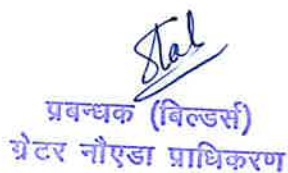 प्रबन्धक (बिल्डर्स)
ग्रेटर नौएडा प्राधिकरण